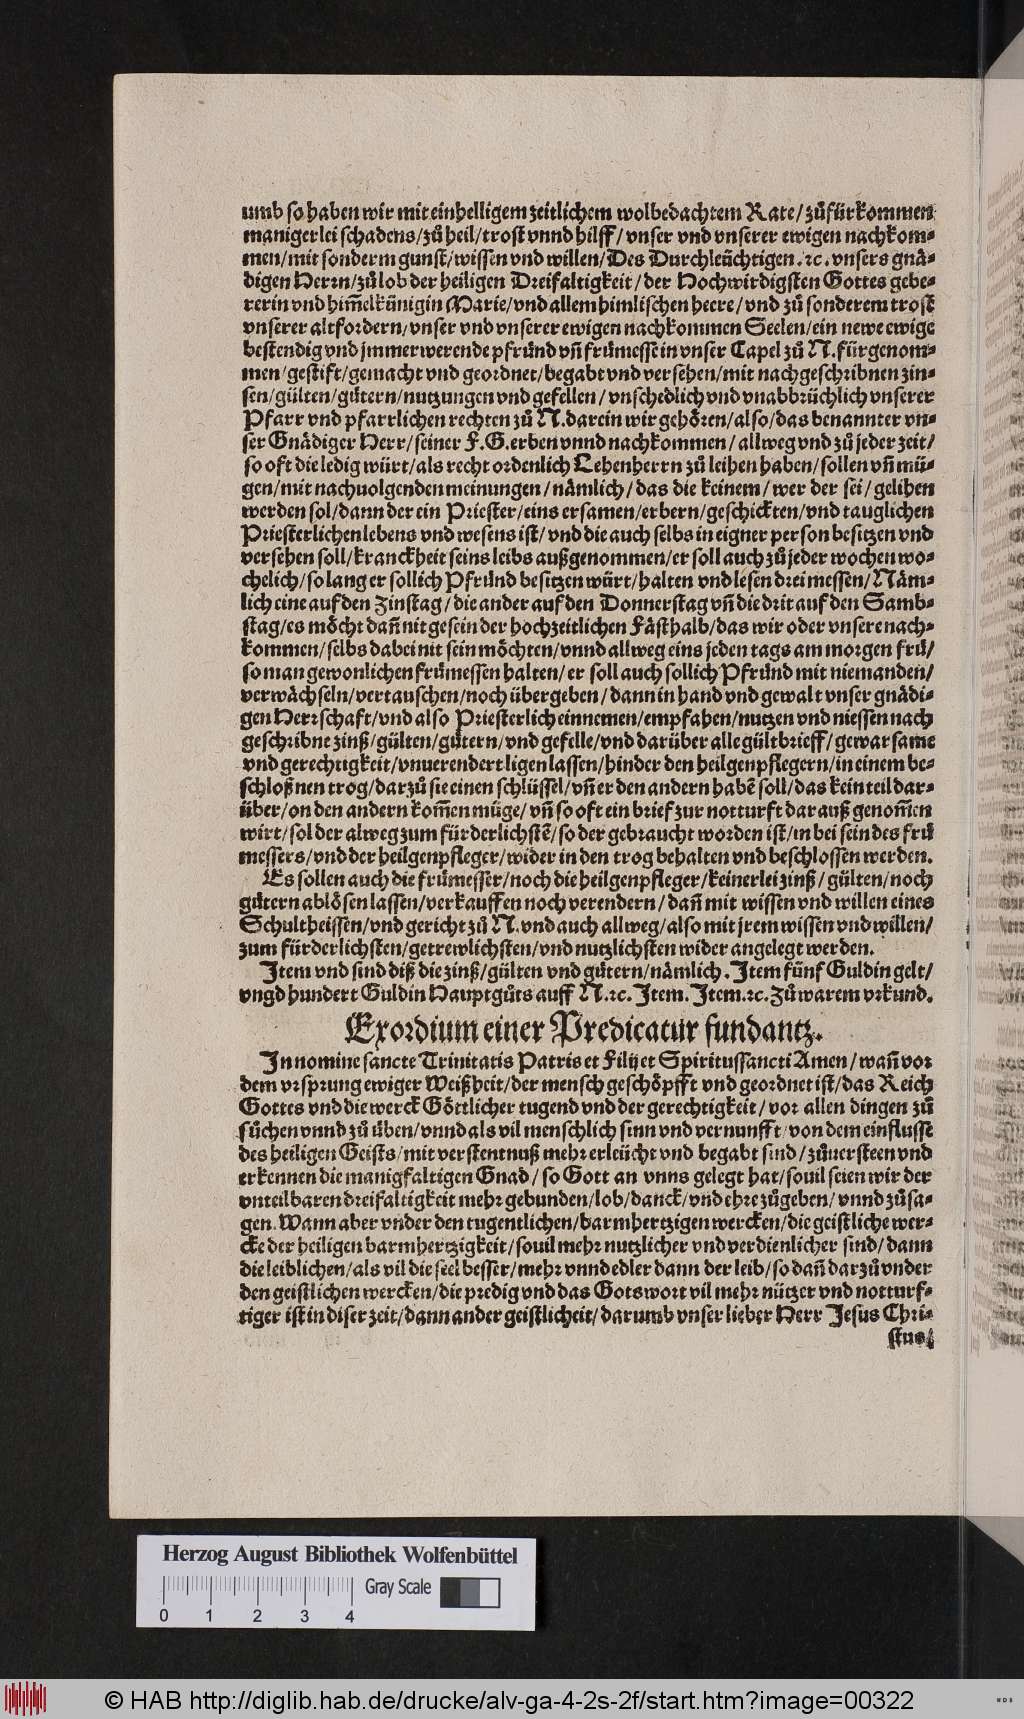 umb so haben wir mit einhelligem zeitlichem wolbedachtem Rate/ zůfürkommen
manigerlei schadens/ zů heil/ trost vnnd hilff/ vnser vnd vnserer ewigen nachkom⸗
men/ mit sonderm gunst/ wissen vnd willen/ Des Durchleüchtigen .ꝛc. vnsers gnä⸗
digen Herrn/ zů lob der heiligen Dreifaltigkeit/ der Hochwirdigsten Gottes gebe⸗
rerin vnd him̃elkünigin Marie/ vnd allem himlischen heere/ vnd zů sonderem trost
vnserer altfordern/ vnser vnd vnserer ewigen nachkommen Seelen/ ein newe ewige
bestendig vnd jmmerwerende pfründ vñ frümesse in vnser Capel zů N. fürgenom⸗
men/ gestift/ gemacht vnd geordnet/ begabt vnd versehen/ mit nachgeschribnen zin⸗
sen/ gülten/ gůtern/ nutzungen vnd gefellen/ vnschedlich vnd vnabbrüchlich vnserer
Pfarr vnd pfarrlichen rechten zů N. darein wir gehören/ also/ das benannter vn⸗
ser Gnädiger Herr/ seiner F. G. erben vnnd nachkommen/ allweg vnd zů jeder zeit/
so oft die ledig würt/ als recht ordenlich Lehenherrn zů leihen haben/ sollen vñ mü⸗
gen/ mit nachuolgenden meinungen/ nämlich/ das die keinem/ wer der sei/ gelihen
werden sol/ dann der ein Priester/ eins ersamen/ erbern/ geschickten/ vnd tauglichen
Priesterlichen lebens vnd wesens ist/ vnd die auch selbs in eigner person besitzen vnd
versehen soll/ kranckheit seins leibs außgenommen/ er soll auch zů jeder wochen wo⸗
chelich/ so lang er sollich Pfründ besitzen würt/ halten vnd lesen drei messen/ Näm⸗
lich eine auf den Zinstag/ die ander auf den Donnerstag vñ die drit auf den Sambs⸗
stag/ es möcht dañ nit gesein der hochzeitlichen Fäst halb/ das wir oder vnsere nach⸗
kommen/ selbs dabei nit sein möchten/ vnnd allweg eins jeden tags am morgen frü/
so man gewonlichen frümessen halten/ er soll auch sollich Pfründ mit niemanden/
verwächseln/ vertauschen/ noch übergeben/ dann in hand vnd gewalt vnser gnädi⸗
gen Herrschaft/ vnd also Priesterlich einnemen/ empfahen/ nutzen vnd niessen nach
geschribne zinß/ gülten/ gůtern/ vnd gefelle/ vnd darüber alle gültbrieff/ gewarsame
vnd gerechtigkeit/ vnuerendert ligen lassen/ hinder den heilgenpflegern/ in einem be⸗
schloßnen trog/ darzů sie einen schlüssel/ vñ er den andern habẽ soll/ das kein teil dar⸗
über/ on den andern kom̃en müge/ vñ so oft ein brief zur notturft darauß genom̃en
wirt/ sol der alweg zum fürderlichstẽ/ so der gebraucht worden ist/ in bei sein des frü
messers/ vnd der heilgenpfleger/ wider in den trog behalten vnd beschlossen werden.
Es sollen auch die frümesser/ noch die heilgenpfleger/ keinerlei zinß/ gülten/ noch
gůtern ablösen lassen/ verkauffen noch verendern/ dañ mit wissen vnd willen eines
Schultheissen/ vnd gericht zů N. vnd auch allweg/ also mit jrem wissen vnd willen/
zum fürderlichsten/ getrewlichsten/ vnd nutzlichsten wider angelegt werden.
Item vnd sind diß die zinß/ gülten vnd gůtern/ nämlich. Item fünf Guldin gelt/
vngd hundert Guldin Hauptgůts auff N. ꝛc. Item. Item. ꝛc. Zů warem vrkund.
Exordium einer Predicatur fundantz.
In nomine sancte Trinitatis Patris et Filij et Spiritussancti Amen/ wañ vor
dem vrsprung ewiger Weißheit/ der mensch geschöpfft vnd geordnet ist/ das Reich
Gottes vnd die werck Göttlicher tugend vnd der gerechtigkeit/ vor allen dingen zů
sůchen vnnd zů üben/ vnnd als vil menschlich sinn vnd vernunfft/ von dem einflusse
des heiligen Geists/ mit verstentnuß mehr erleücht vnd begabt sind/ zůuersteen vnd
erkennen die manigfaltigen Gnad/ so Gott an vnns gelegt hat/ souil seien wir der
vnteilbaren dreifaltigkeit mehr gebunden/ lob/ danck/ vnd ehre zůgeben/ vnnd zůsa⸗
gen. Wann aber vnder den tugentlichen/ barmhertzigen wercken/ die geistliche wer⸗
cke der heiligen barmhertzigkeit/ souil mehr nutzlicher vnd verdienlicher sind/ dann
die leiblichen/ als vil die seel besser/ mehr vnnd edler dann der leib/ so dañ darzů vnder
den geistlichen wercken/ die predig vnd das Gotswort vil mehr nützer vnd notturf⸗
tiger ist in diser zeit/ dann ander geistlicheit/ darumb vnser lieber Herr Jesus Chri⸗
stus/
Herzog August Bibliothek Wolfenbüttel
Gray Scale
0 1 2 3 4
© HAB http://diglib.hab.de/drucke/alv-ga-4-2s-2f/start.htm?image=00322